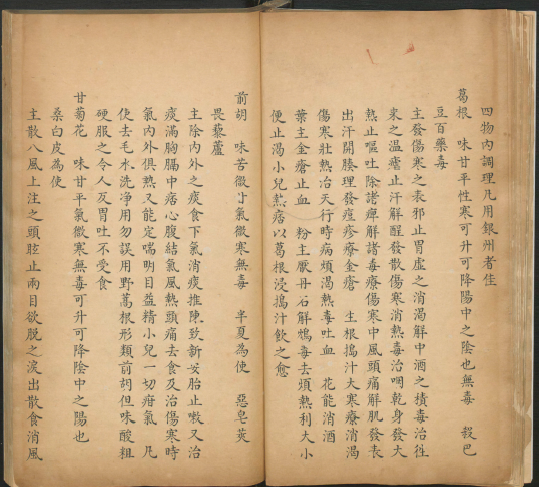 四物內調理凡用銀州者佳
葛根　味甘平性寒可升可降陽中之陰也無毒　殺巴
豆百藥毒
主發傷寒之表邪止胃虛之消渴解中酒之積毒治徃
來之溫瘧止汗解酲發散傷寒消熱毒治咽乾身發大
熱止嘔吐除諸痺解諸毒療傷寒中風頭痛解肌發表
出汗開腠理發痘疹療金瘡　生根搗汁大寒療消渴
傷寒壯熱治天行時病煩渴熱毒吐血　花能消酒
葉主金瘡止血　粉主壓丹石解鴆毒去煩熱利大小
便止渴小兒熱痞以葛根浸搗汁飲之愈
前胡　味苦微甘氣微寒無毒　半夏為使　惡皂莢
畏藜蘆
主除內外之痰食下氣消痰推陳致新安胎止嗽又治
痰滿胸膈中痞心腹結氣風熱頭痛去食及治傷寒時
氣內外俱熱又能定喘明目益精小兒一切疳氣　凡
使去毛水洗淨用勿誤用野葛根形類前胡但味酸粗
硬服之令人反胃吐不受食
甘菊花　味甘平氣微寒無毒可升可降陰中之陽也
桑白皮為使
主散八風上注之頭眩止兩目欲脫之淚出散食消風